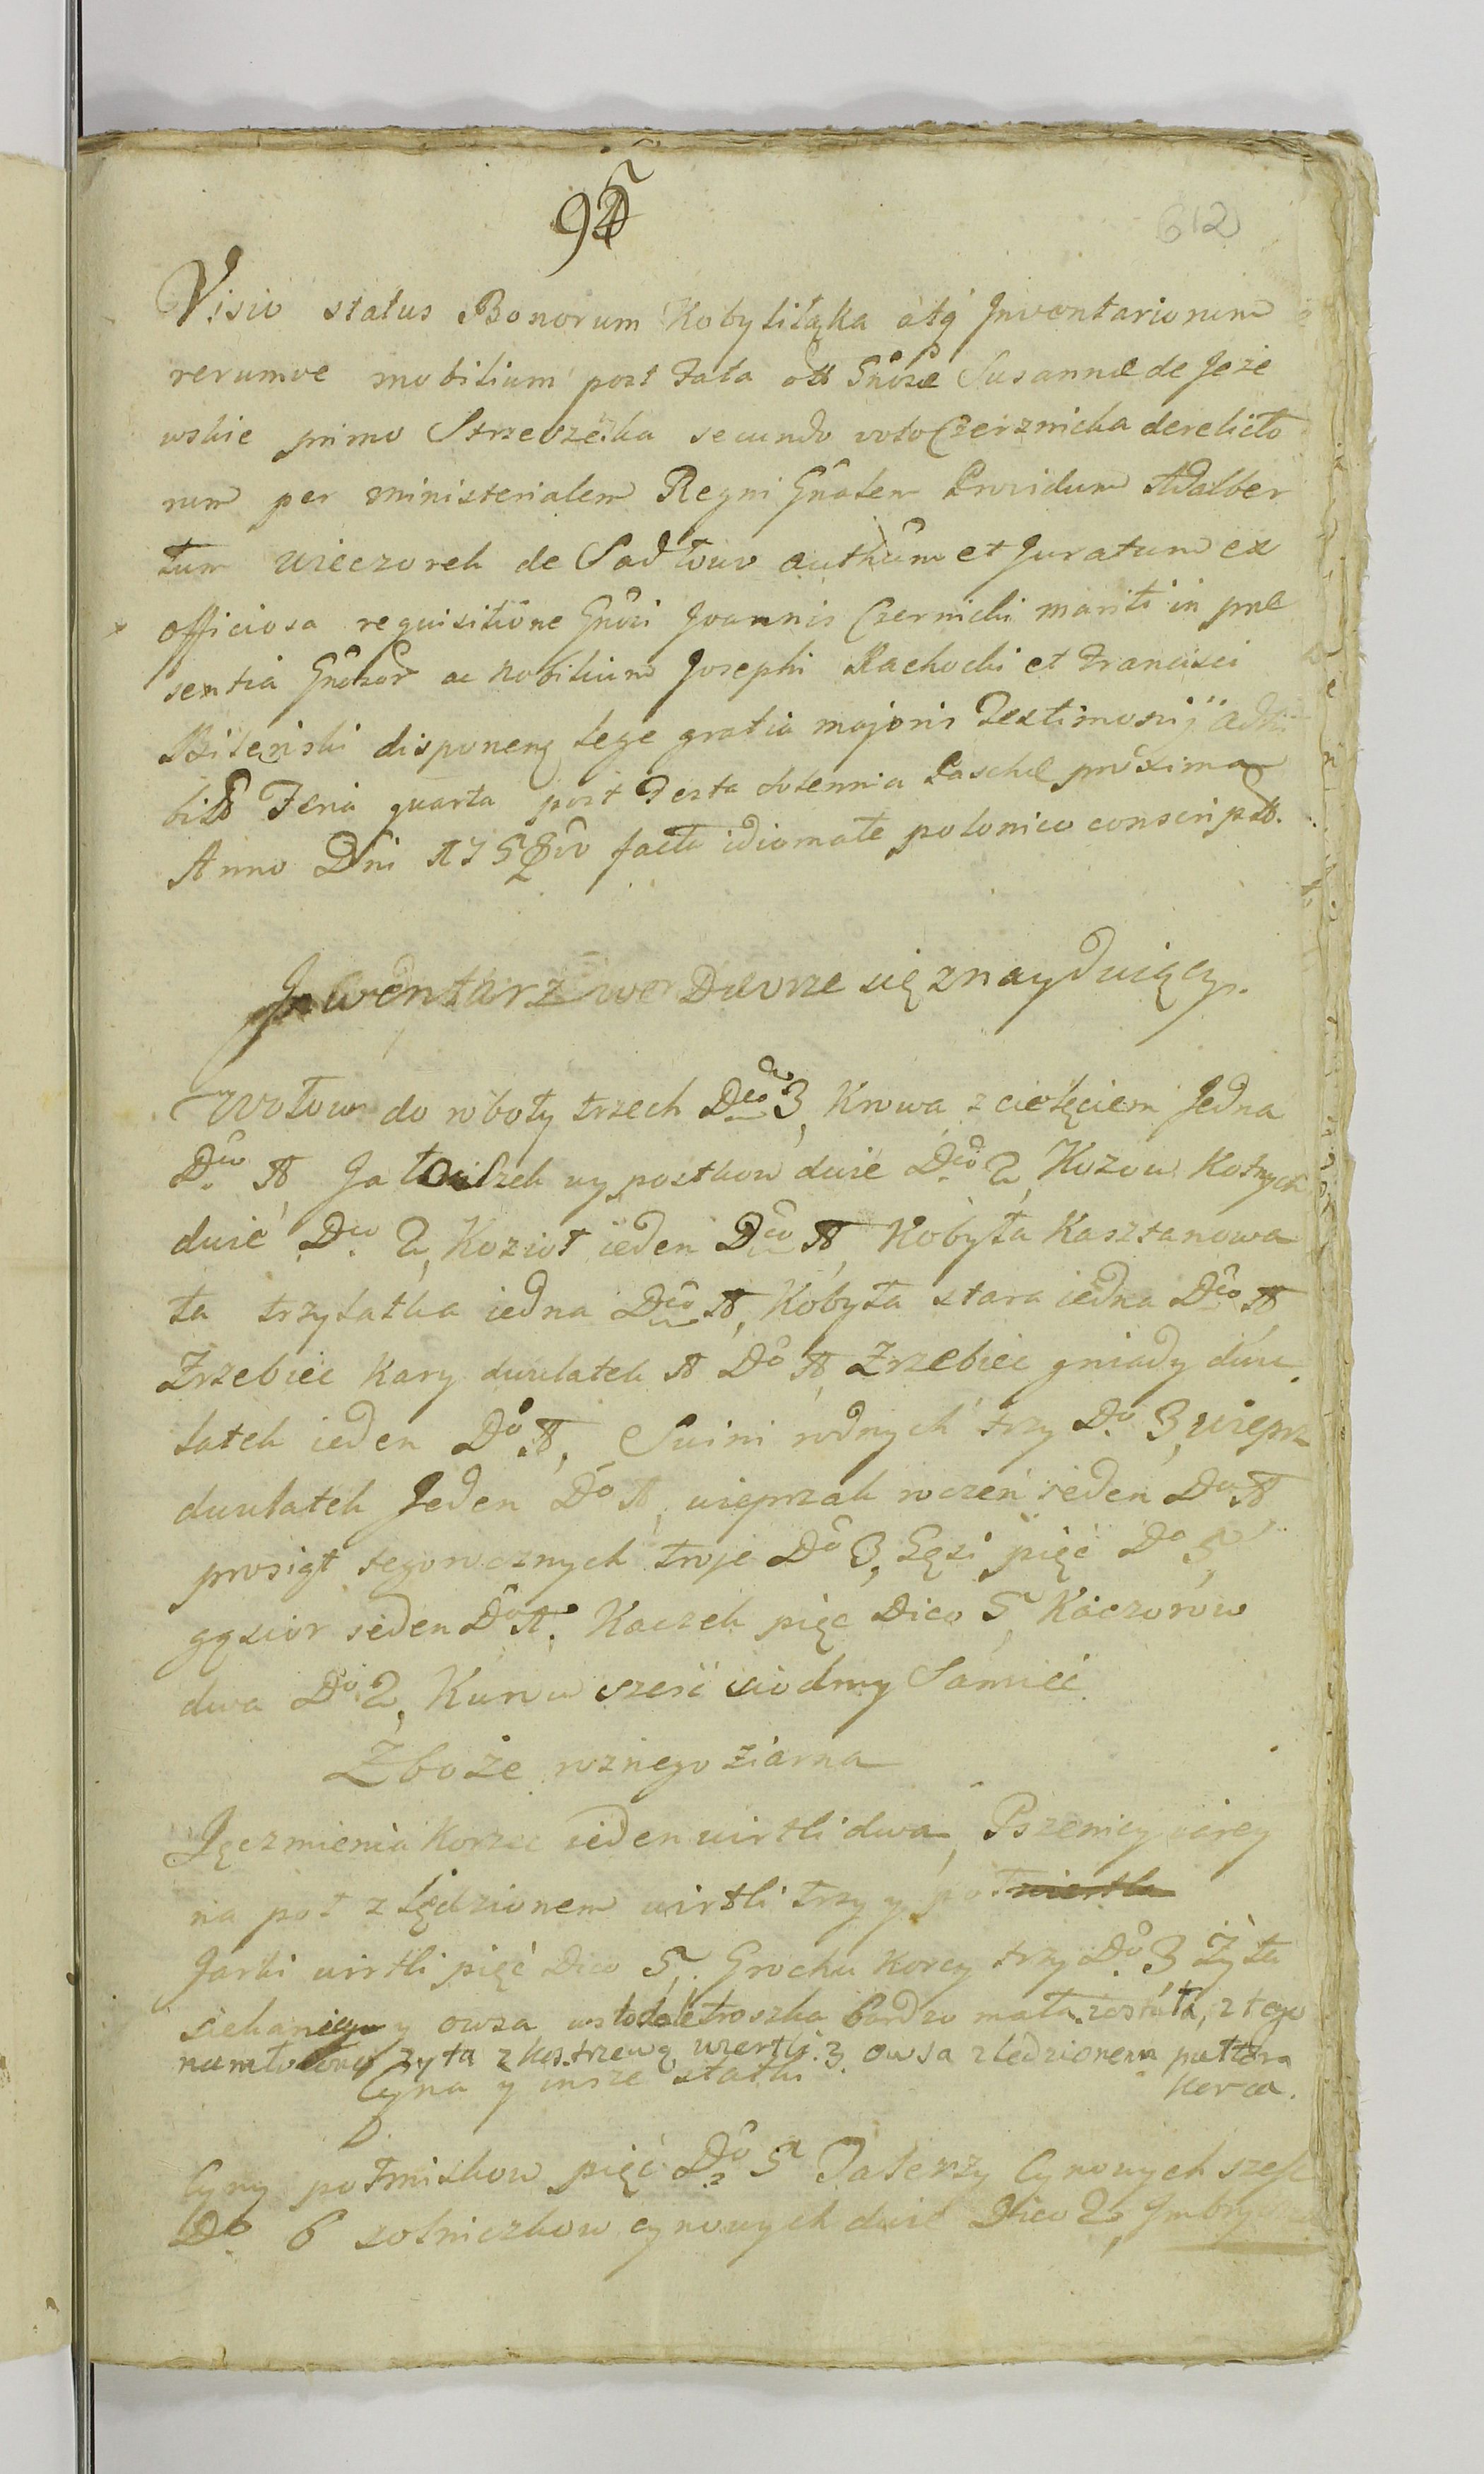 95
612
Visio status Bonorum Kobyliłąka atq Inventariorum
rerumve mobilium post Fata oll Gnosæ Susannæ de Jeże
wskie primo Strzeszeska secundo voto Czerznicka derelicto
rum per ministerialem Regni Gnalem Providum Adalber
tum Wieczorek de Sadłowo authum et Juratum ex
officiosa requisitione Gnosi Joannis Czernicki mariti in præ
sentia Gnosor ac Nobilium Josephi Rachocki et Francisci
disponene lege gratia majoris Testimonij adhi
bito Feria quarta post Festa solennia Paschæ proxima
Anno Dni facta idiomate polonico conscripta.
Inwentarz we Dworze się znayduiący.
Wołow do roboty trzech Dco 3, Krowa z cielęciem Jedna
Dco 1, Jałoszek wypostkow dwie Dco 2, Kozow Kotnych
dwie Dco 2, Kozioł ieden Dco 1, Kobyła Kasztanowa
ta trzylatka iedna Dco 1, Kobyła stara iedna Dco 1,
Zrzebiec Kary dwulatek 1 Do 1, Zrzebiec gniady dwu
latek ieden Do 1, Swini rodnych trzy Do 3, wieprz
dwulatek Jeden Do 1, wieprzak roczen ieden Do 1
prosiąt segorocznych troje Do 3, Gęsi pięć Do 5,
gąsior ieden Do 1. Kaczek pięc Dico 5, Kaczorow
dwa Do 2, Kurow sześć siodmy Samiec
Zboże roznego ziarna
Jęczmienia Korzec ieden wirtli dwa, Pszenicy iarey
na poł z lędzionem wirtli trzy y poł wiertla
Jarki wirtli pięć Dico 5, Grochu Korcy trzy Do 3 Żyta
siekanego y owsa wstodole troszka bardzo mała została, z tego
namłocono żyta z kostrzewą wiertli 3. owsa z ledzionem pułtora
Korca.
Cyna y insze statki
Cyny połmiskow pięć Do 5 Talerzy Cynowych szesc
Do 6 solniczkow cynowych dwie Dico 2,